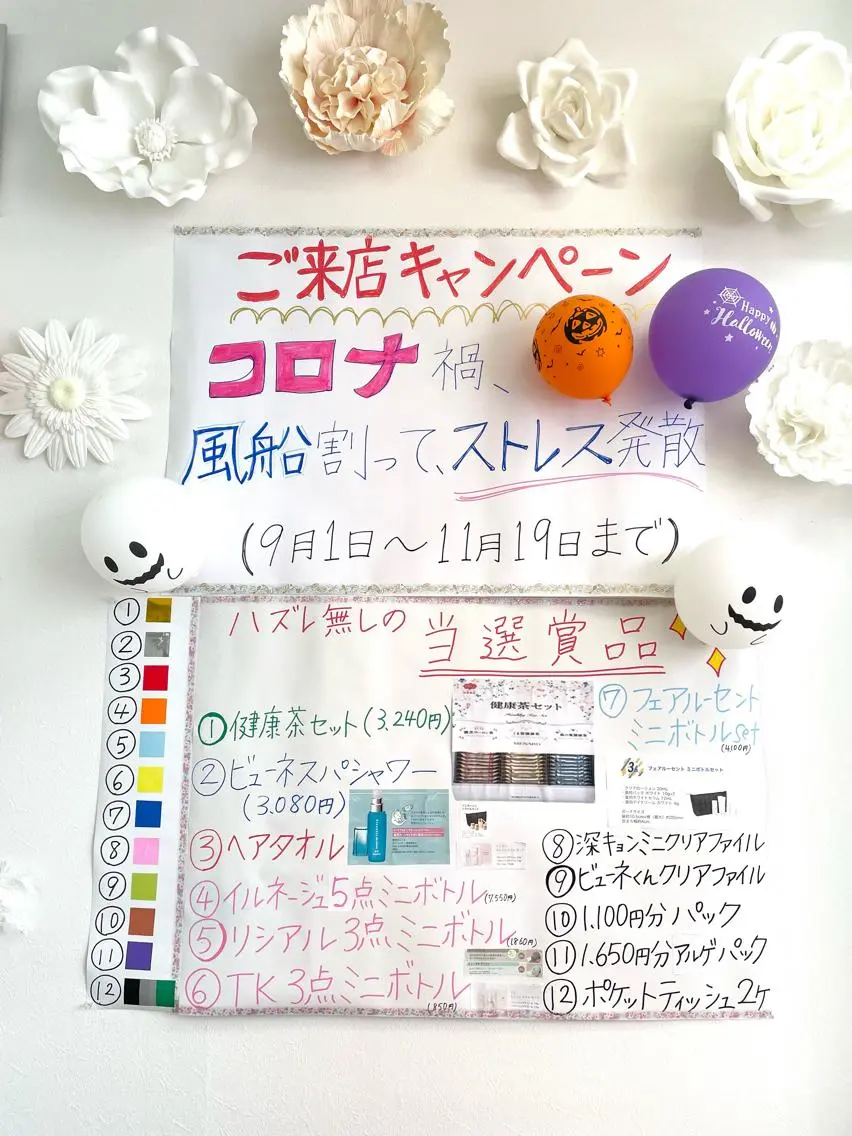 ご来店キャンペーン
コロナ禍、
Happy
Halloween
風船割って、ストレス発散
(9月1日〜11月19日まで)
ハズレ無しの当選賞品
①
②
③
④
⑤
⑥
⑦
⑧
⑨
⑩
⑪
⑫
①健康茶セット(3,240円)
②ビューネスパシャワー
(3.080円)
③ヘアタオル
④イルネージュ5点ミニボトル(7,550円)
⑤リシアル3点ミニボトル(1860円)
⑥TK3点ミニボトル(850円)
健康茶セット
⑦フェアルーセント
ミニボトルset
(4100円)
フェアルーセント ミニボトルセット
⑧深キョンミニクリアファイル
⑨ビューネくんクリアファイル
⑩1.100円分パック
⑪1.650円分アルゲパック
⑫ポケットティッシュ2ケ